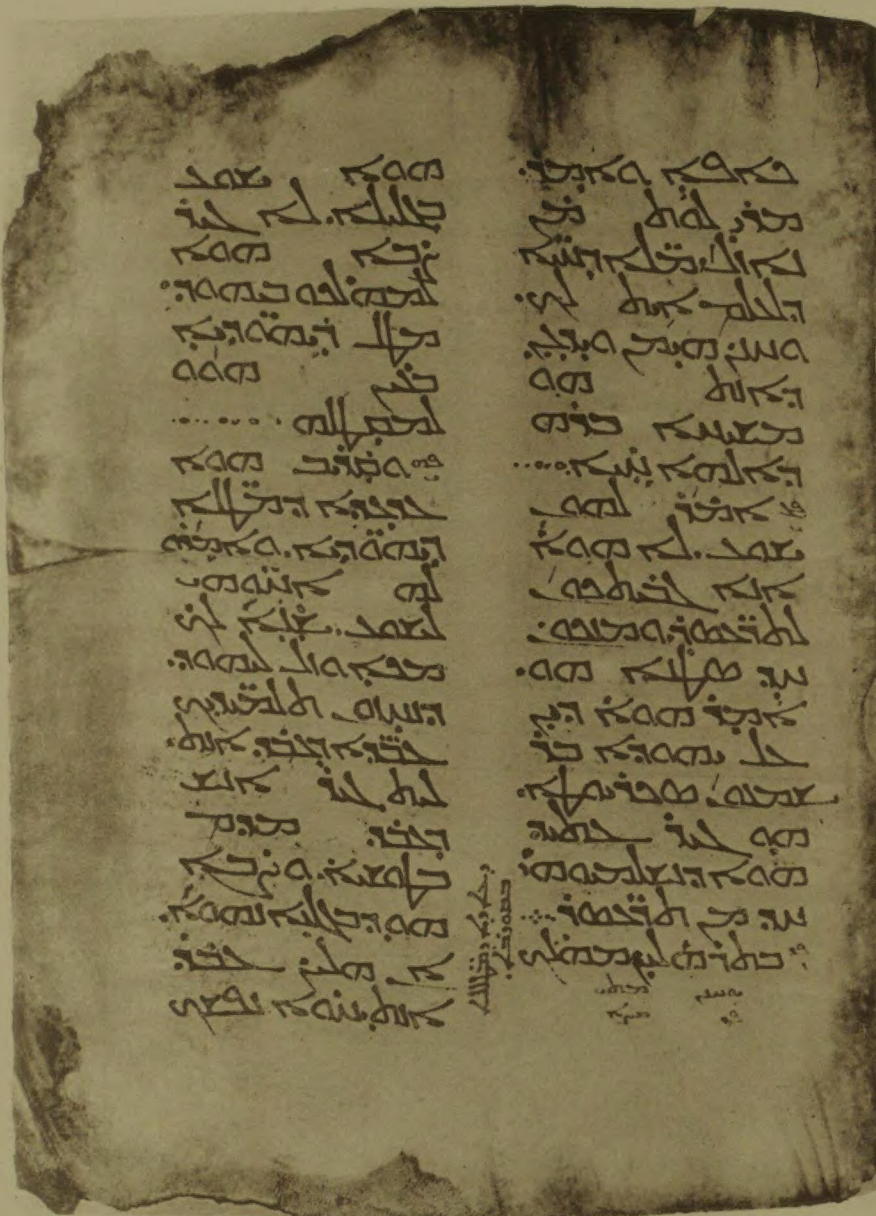 ܟܐܦܐ ܘܐܡܪ.
ܡܪܝ ܠܘܬ ܡܢ
ܢܐܙܠ ܡ̈ܠܐ ܕܚܝ̈ܐ
ܕܠܥܠܡ ܐܝܬ ܠܟ.
ܘܚܢܢ ܗܝܡܢ ܘܝܕܥܢ
ܕܐܢܬ ܗܘ
ܡܫܝܚܐ ܒܪܗ
ܕܐܠܗܐ ܚܝܐ....
ܐܡܪ ܠܗܘܢ
ܝܫܘܥ. ܠܐ ܗܘܐ
ܐܢܐ ܓܒܝܬܟܘܢ
ܠܬܪ̈ܥܣܪ. ܘܡܢܟܘܢ
ܚܕ ܣܛܢܐ ܗܘ.
ܐܡܪ ܗܘܐ ܕܝܢ
ܥܠ ܝܗܘܕܐ ܒܪ
ܫܡܥܘܢ ܣܟܪܝܘܛܐ.
ܗܘ ܓܝܪ ܥܬܝܕ
ܗܘܐ ܕܢܫܠܡܝܘܗܝ
ܚܕ ܡܢ ܬܪ̈ܥܣܪ
ܒܬܪܗܠܝܢ ܡܗܠܟ
ܗܘܐ ܝܫܘܥ
ܒܓܠܝܠܐ. ܠܐ ܓܝܪ
ܨܒܐ ܗܘܐ
ܠܡܗܠܟܘ ܒܝܗܘܕ.
ܡܛܠ ܕܝܗܘ̈ܕܝܐ
ܒܥܝܢ ܗܘܘ
ܠܡܩܛܠܗ
ܘܩܪܒ ܗܘܐ
ܥܕܥܕܐ ܕܡܛ̈ܠܐ
ܕܝܗܘ̈ܕܝܐ. ܘܐܡܪܘ
ܠܗ ܐܚ̈ܘܗܝ
ܠܝܫܘܥ. ܫܢܐ ܠܟ
ܡܟܐ ܘܙܠ ܠܝܗܘܕ.
ܕܢܚܙܘܢ ܬܠܡܝ̈ܕܝܟ
ܥܒ̈ܕܐ ܕܥܒܕ ܐܢܬ.
ܠܝܬ ܓܝܪ ܐܢܫ
ܕܥܒܕ ܡܕܡ
ܒܛܘܫܝܐ. ܘܨܒܐ
ܗܘ ܕܒܓܠܝܐ ܢܗܘܐ.
ܐܢ ܗܠܝܢ ܥܒܕ
ܐܢܬ. ܚܘܐ ܢܦܫܟ